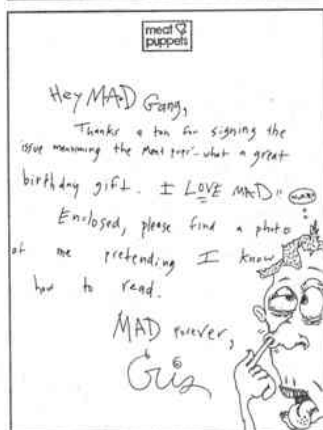 meat
puppets
Hey MAD Gang,
Thanks a ton for signing the
issue mentioning the Meat – what a great
birthday gift. I LOVE MAD!!
Enclosed, please find a photo
of me pretending I know
how to read.
MAD forever,
Cris